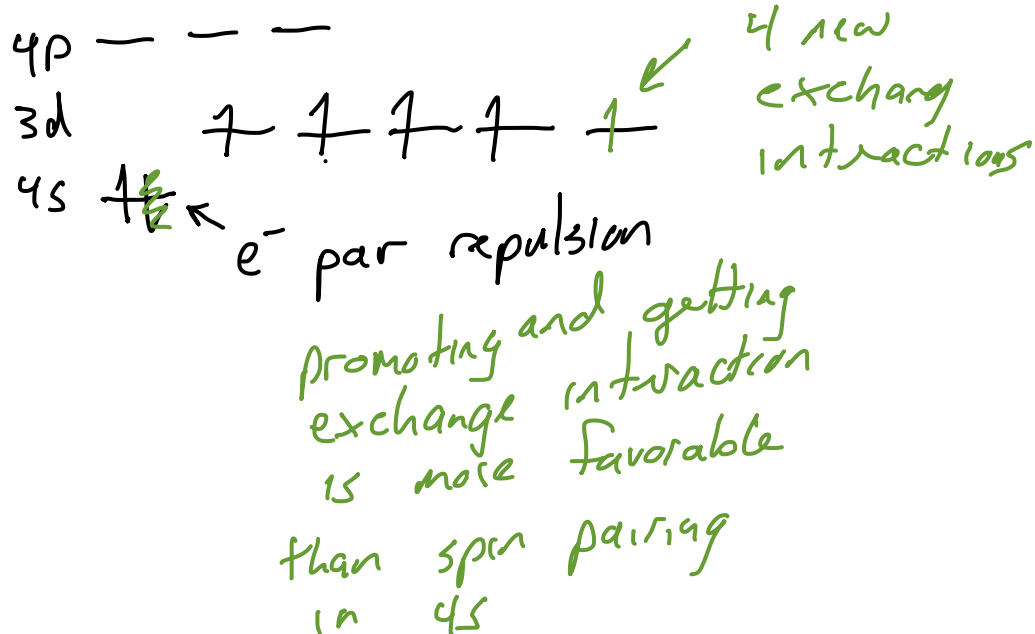 4p
4 new
exchang
intractions
3d
4s
e⁻ par repulsion
promoting and getting
exchange interaction
is more favorable
than spin pairing
in 4s